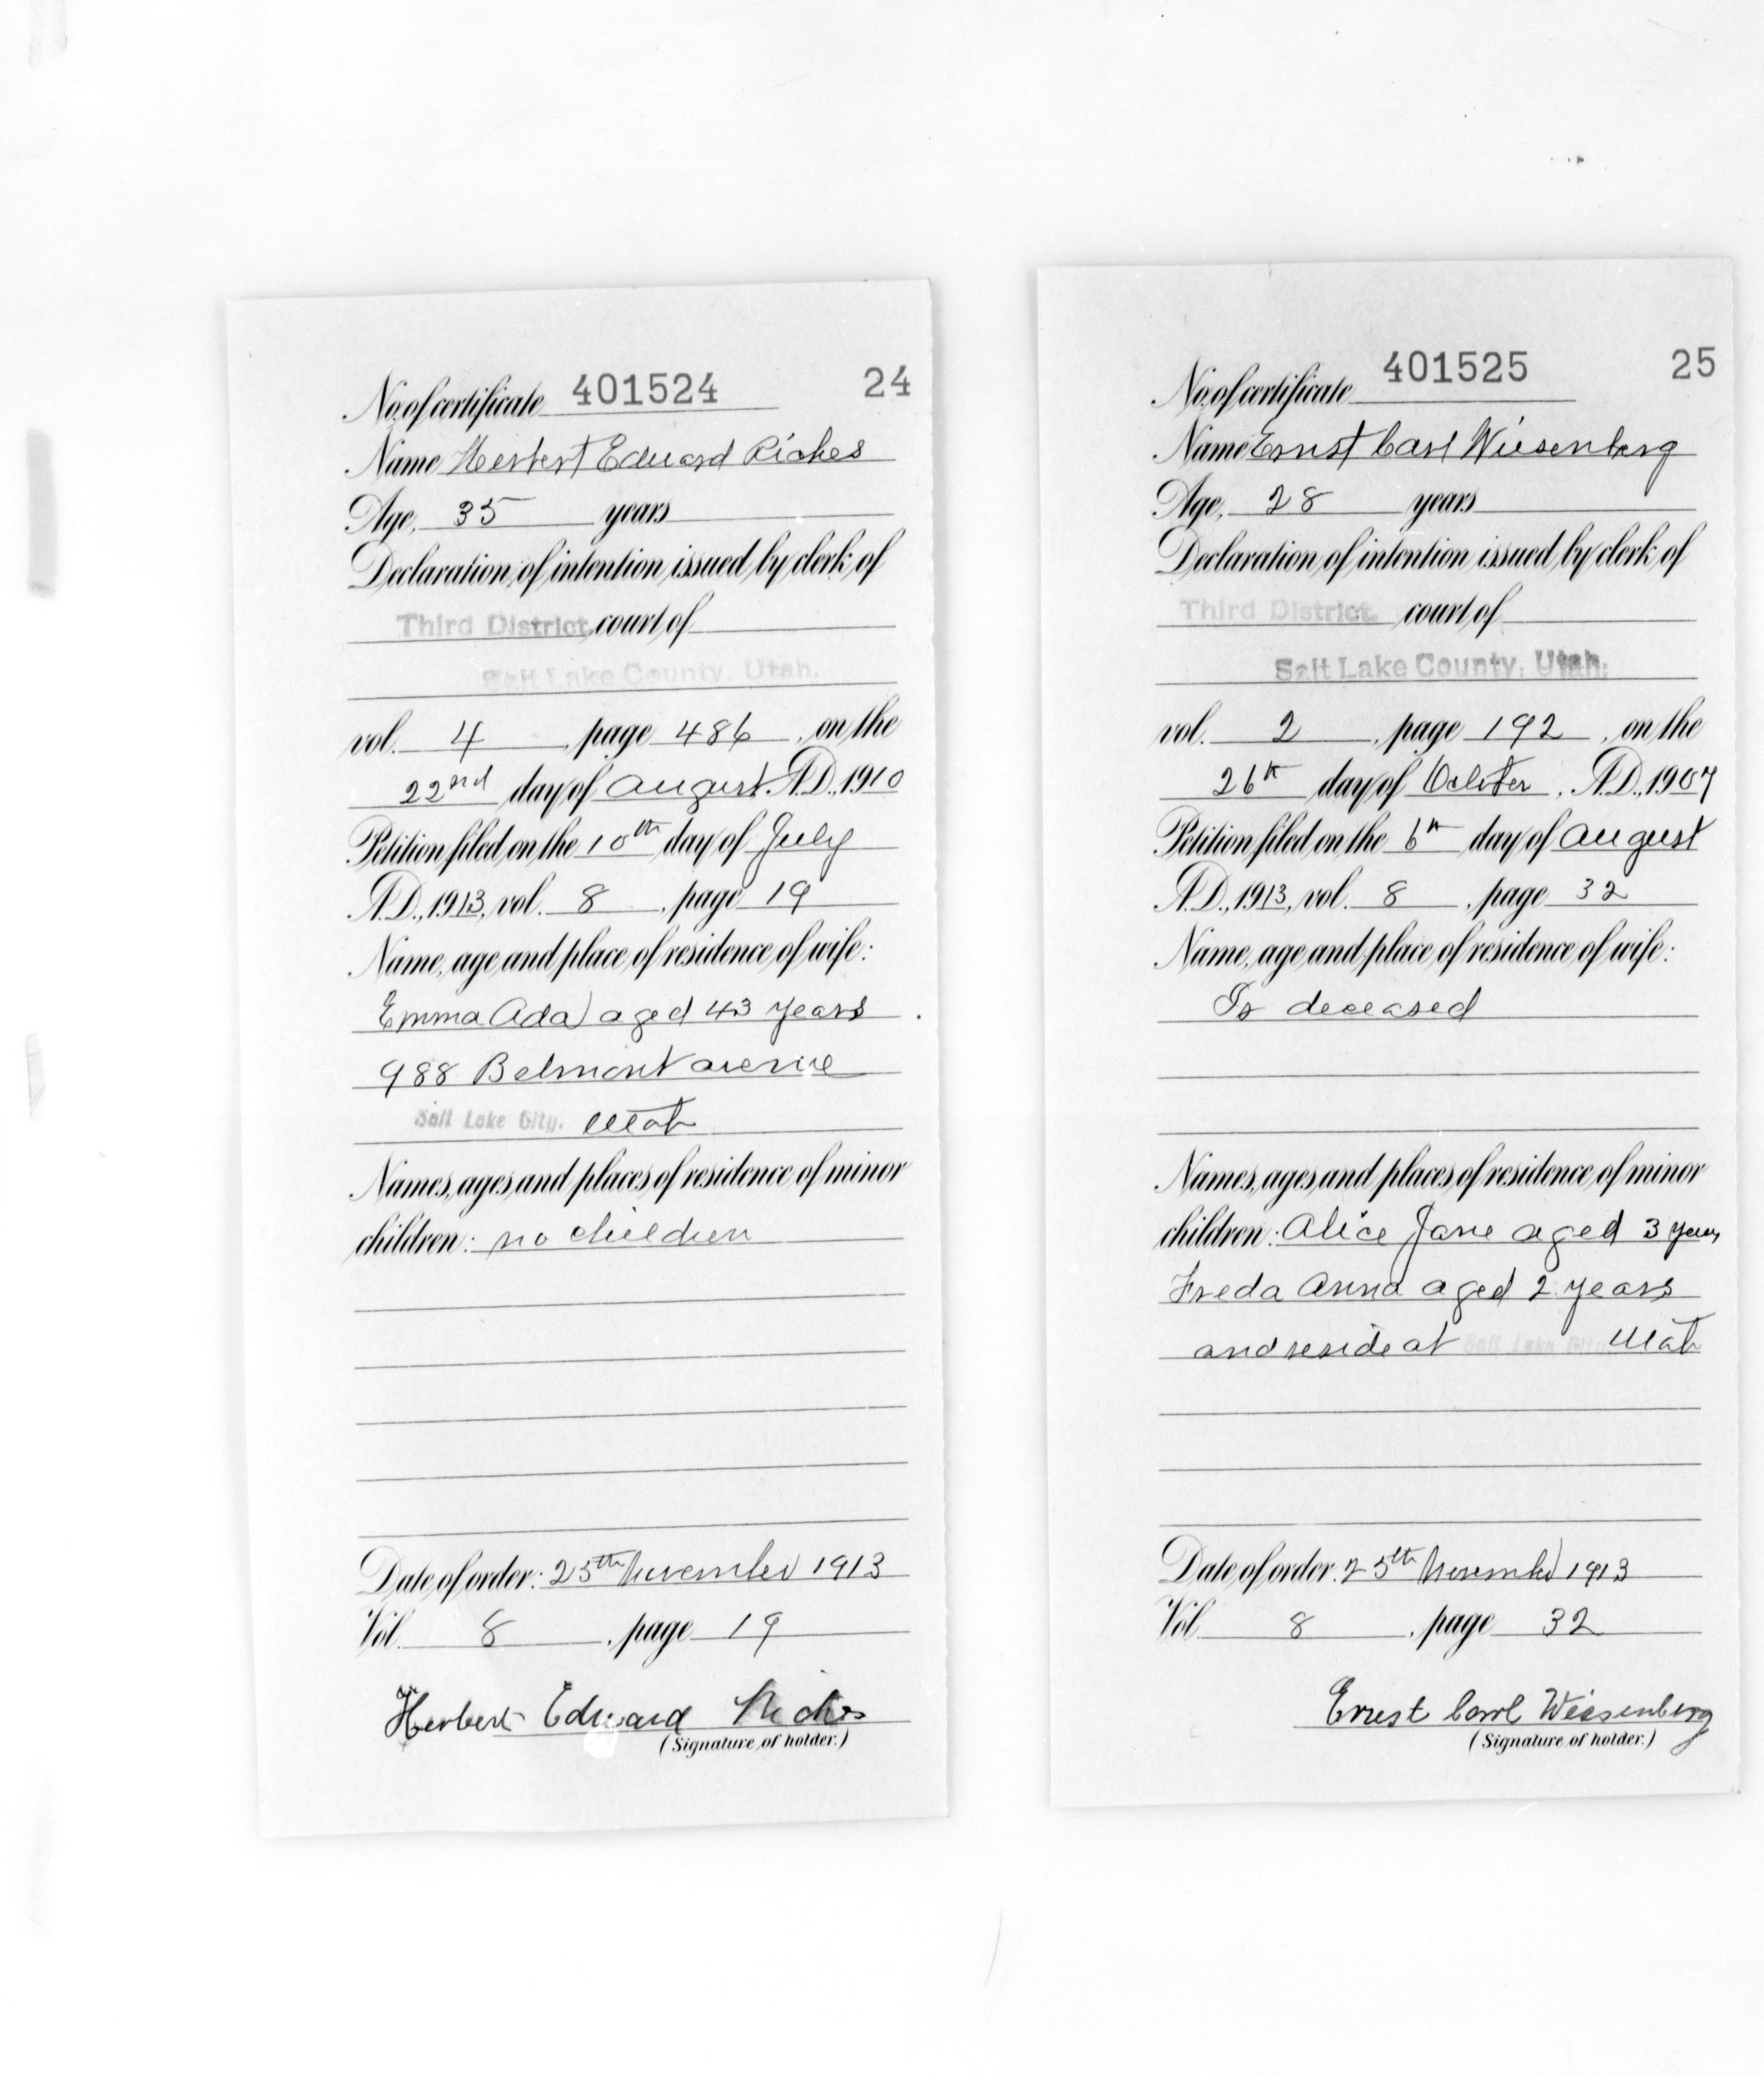 No. of certificate 401524 24
Name Herbert Edward Riches
Age, 35 years
Declaration of intention issued by clerk of
Third District court of
Salt Lake County, Utah.
vol. 4, page 486, on the
22nd day of August A.D., 1910
Petition filed on the 10th day of July
A.D., 1913, vol. 8, page 19
Name, age and place of residence of wife:
Emma Ada aged 43 years
988 Belmont avenue
Salt Lake City. Utah
Names, ages and places of residence of minor
children: no children
Date of order: 25th November 1913
Vol. 8, page 19
Herbert Edward Riches
(Signature of holder.)
No. of certificate 401525 25
Name Ernst Carl Wiesenberg
Age, 28 years
Declaration of intention issued by clerk of
Third District court of
Salt Lake County, Utah.
vol. 2, page 192, on the
26th day of October, A.D., 1907
Petition filed on the 6th day of August
A.D., 1913, vol. 8, page 32
Name, age and place of residence of wife:
Is deceased
Names, ages and places of residence of minor
children: Alice Jane aged 3 years
Freda Anna aged 2 years
and reside at Salt Lake City Utah
Date of order: 25th November 1913
Vol. 8, page 32
Ernest Carl Wiesenberg
(Signature of holder.)